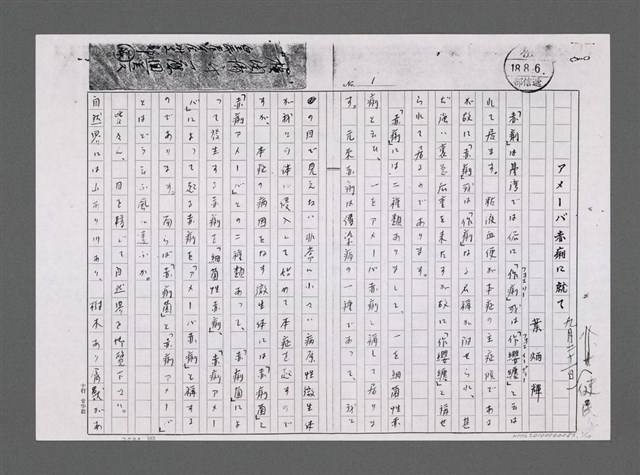 アメーバ赤痢に就て
葉炳輝
「赤痢」は臺湾では俗に「作痢」或は「作纓纏」と云は
れて居ます。粘液血便が本症の主症候である
が故に「赤痢」或は「作痢」なる名稱が附せられ、甚
だ強い裏急后重を来たすが故に「作纓纏」と稱せ
られて居るのであります。
「赤痢」には二種類ありまして、一を細菌性赤
痢と云ひ、一をアメーバ赤痢と稱して居りま
す。元来赤痢は傳染病の一種であって、我々
の目で見えない非常に小さい病原性微生体
が我々の体に侵入して始めて本症を起すので
すが、本症の病因をなす微生体には「赤痢菌」と
「赤痢アメーバ」との二種類あって、「赤痢菌」によ
って発生する赤痢を「細菌性赤痢」、「赤痢アメー
バ」によって起る赤痢を「アメーバ赤痢」と稱する
のであります。而らば「赤痢菌」と「赤痢アメーバ」
とはどう云ふ風に違ふか。
皆さん、目を轉じて自然界を御覧下さい。
自然界には山あり川あり、樹木あり
九月二十日
18.8.6.
No. 1